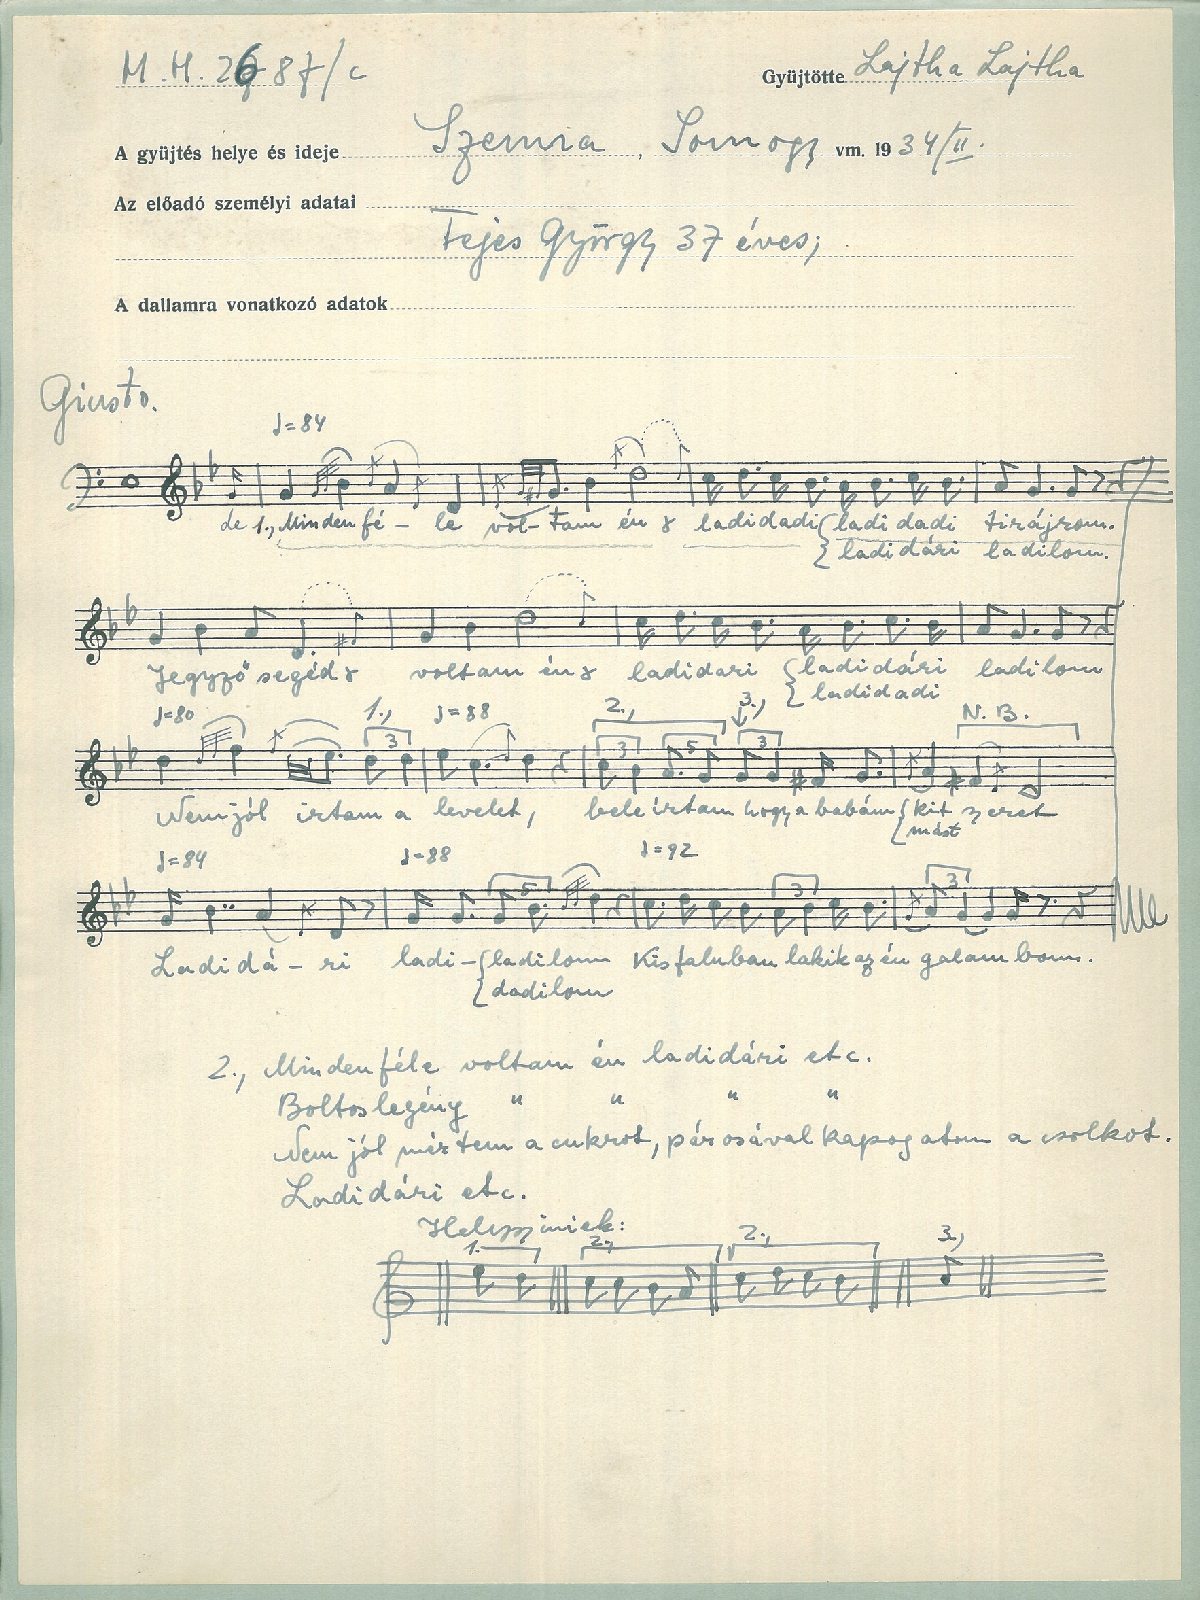 M.H. 2687/c
Gyüjtötte Lajtha Lajtha
A gyüjtés helye és ideje Szenna, Somogy vm. 1934/II.
Az előadó személyi adatai
Fejes György 37 éves;
A dallamra vonatkozó adatok
Giusto.
♩=84
de 1., Mindenfé - le vol-tam én ladidadi { ladidadi tirájrom.
{ ladidári ladilom.
Jegyző segéd voltam én ladidari { ladidári ladilom
{ ladidadi
♩=80 1., ♩=88 2., 3., N.B.
3 3 5 3
Nem jól irtam a levelet, bele irtam hogy a babám { kit szeret
{ mást
♩=84 ♩=88 ♩=92
5 3 3
Ladidá - ri ladi- { ladilom Kisfaluban lakik az én galambom.
{ dadilom
2., Mindenféle voltam én ladidári etc.
Boltoslegény " " " "
Nem jól mértem a cukrot, párosával kapogatom a csolkot.
Ladidári etc.
1. 2., 2., 3.,